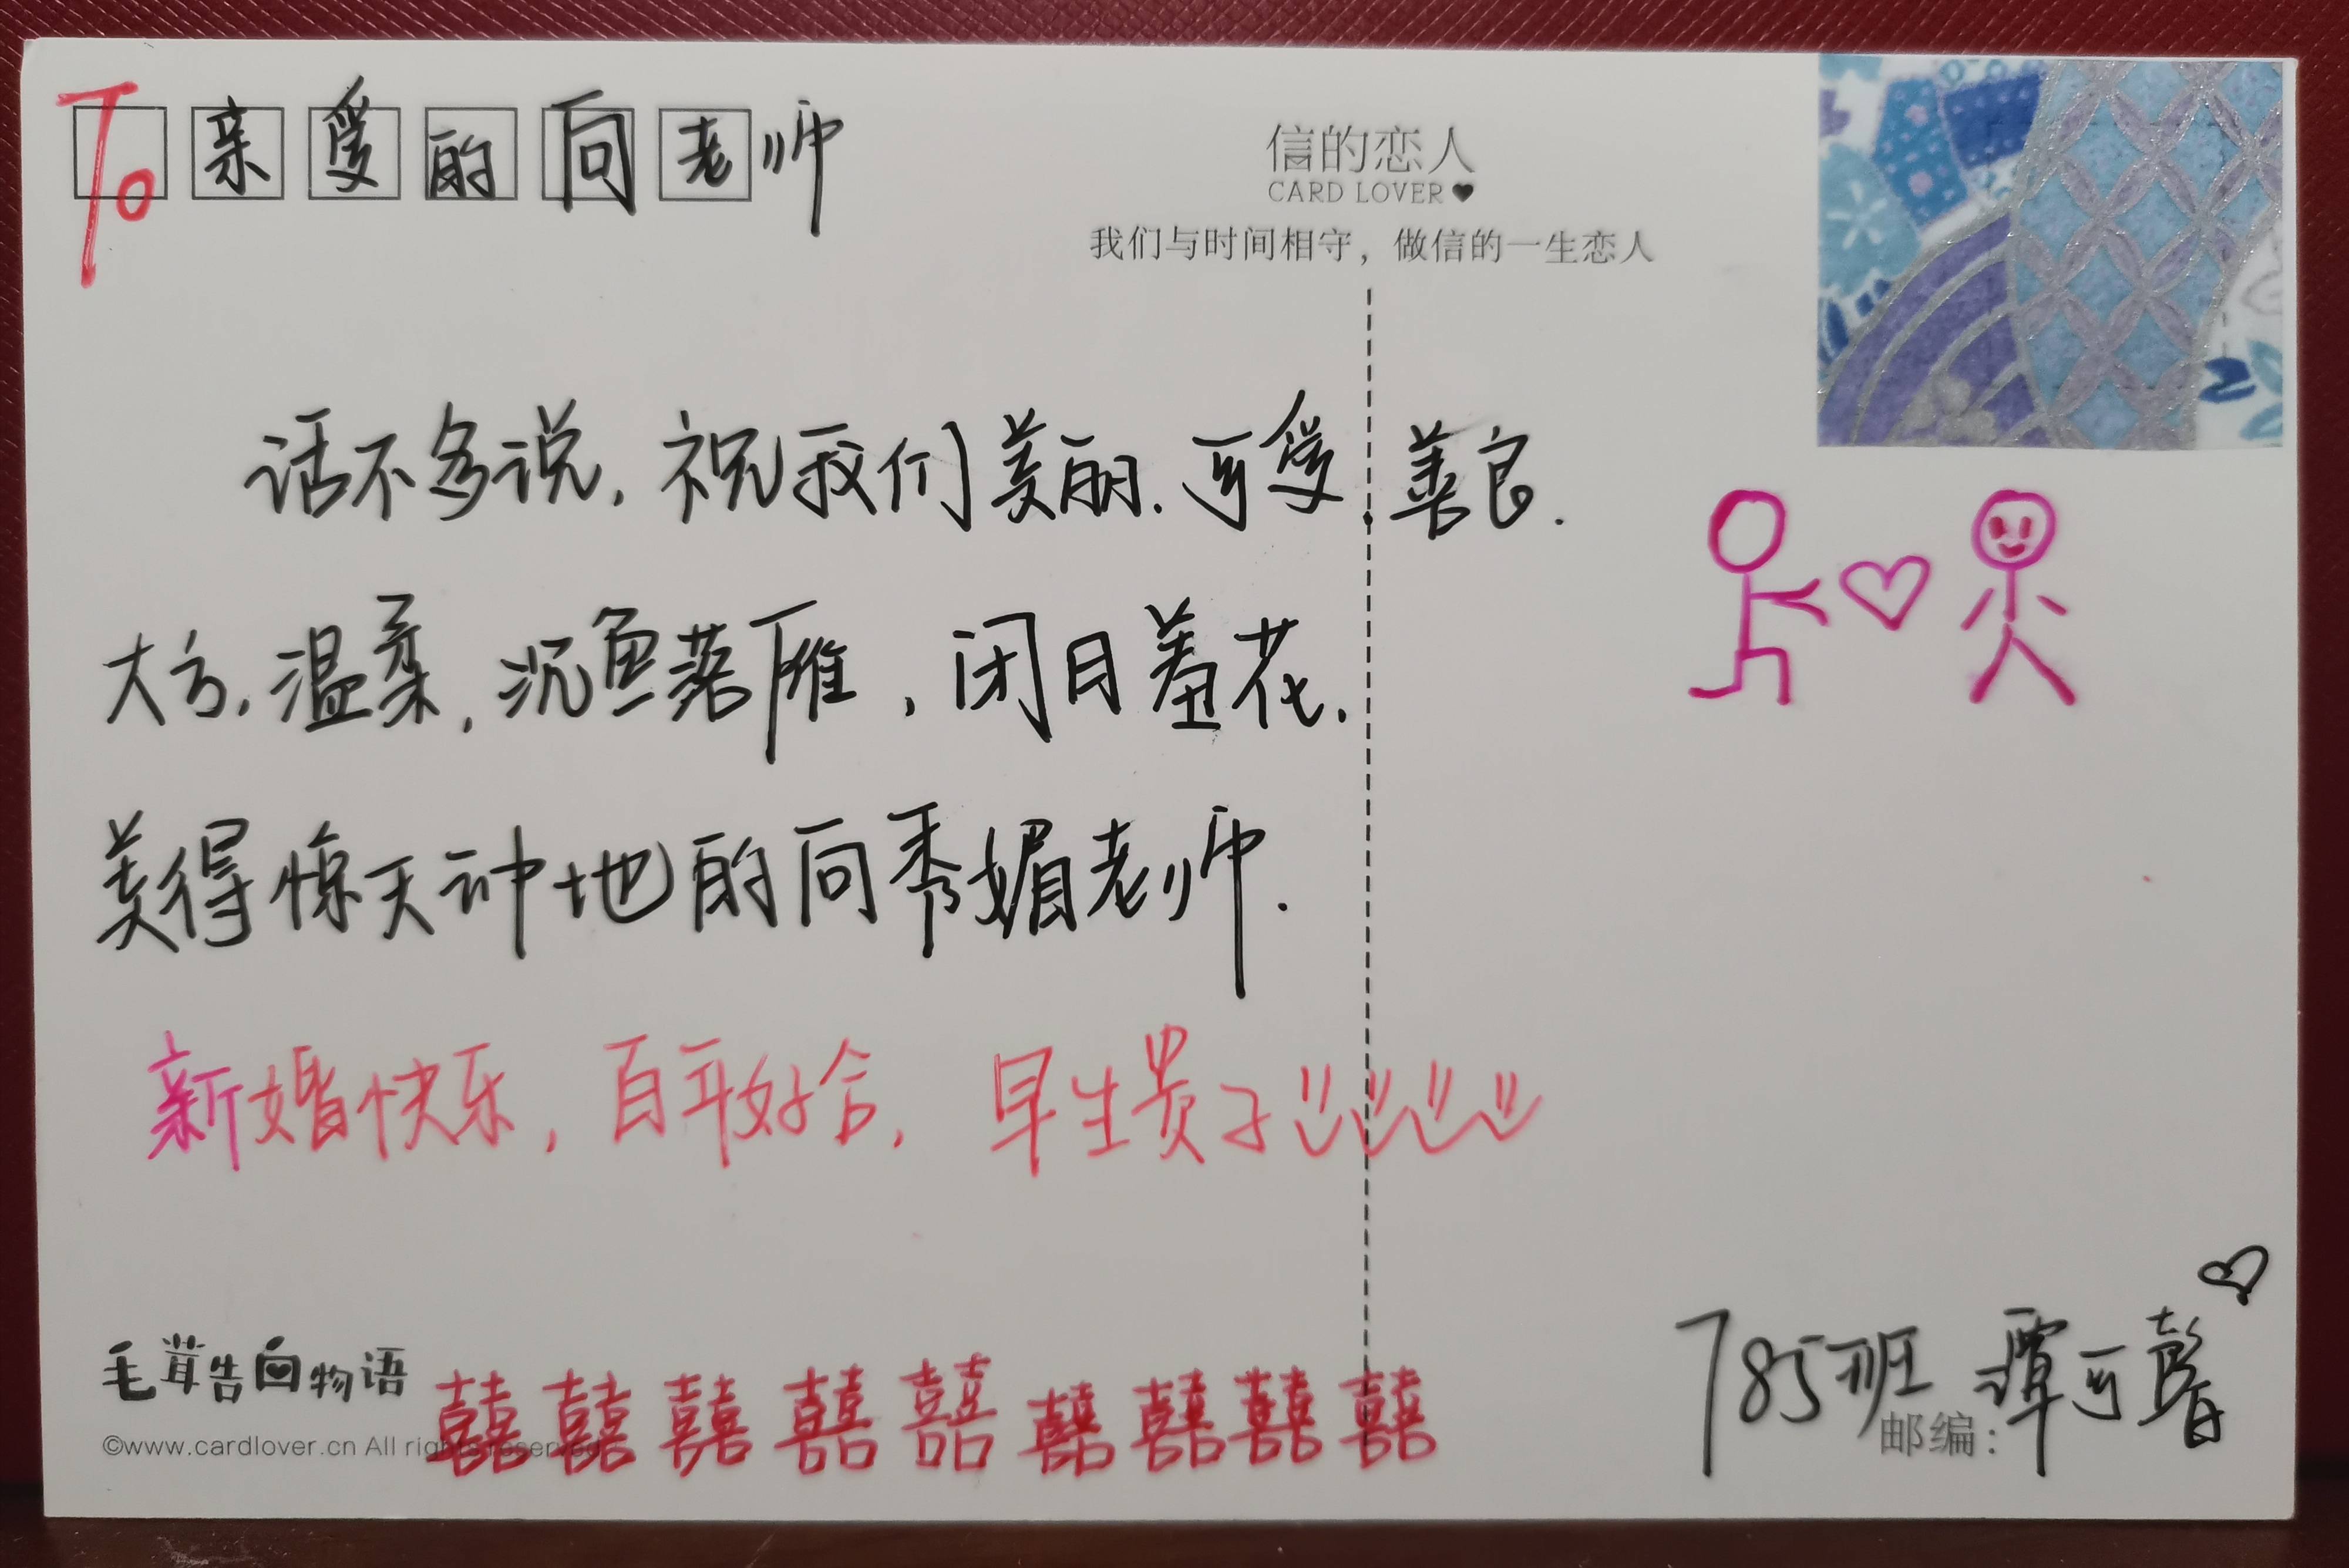 To 亲爱的向老师
信的恋人
CARD LOVER
我们与时间相守，做信的一生恋人
话不多说，祝我们美丽、可爱、善良、
大方、温柔、沉鱼落雁、闭月羞花、
美得惊天动地的向秀媚老师.
新婚快乐，百年好合，早生贵子
毛茸告白物语
©www.cardlover.cn All rights reserved
囍囍囍囍囍囍囍囍囍
785班 谭可馨
邮编：